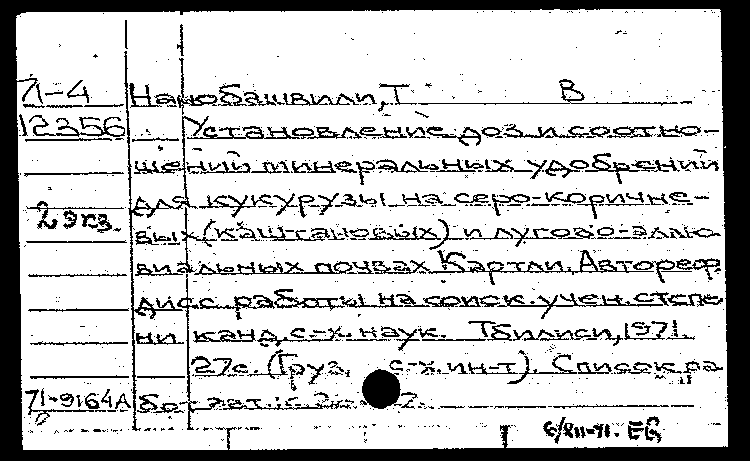 71-4 Нанобашвили, Т В
12356 Установление доз и соотно-
шений минеральных удобрений
для кукурузы на серо-коричне-
2 экз. вых (каштановых) и лугово-аллю-
виальных почвах Картли. Автореф.
дисс. работы на соиск. учен. степе
ни канд. с-х. наук. Тбилиси, 1971.
27с. (Груз. с-х. ин-т). Список ра
71-9164А бот авт.: с.
6/XII-71. ЕБ